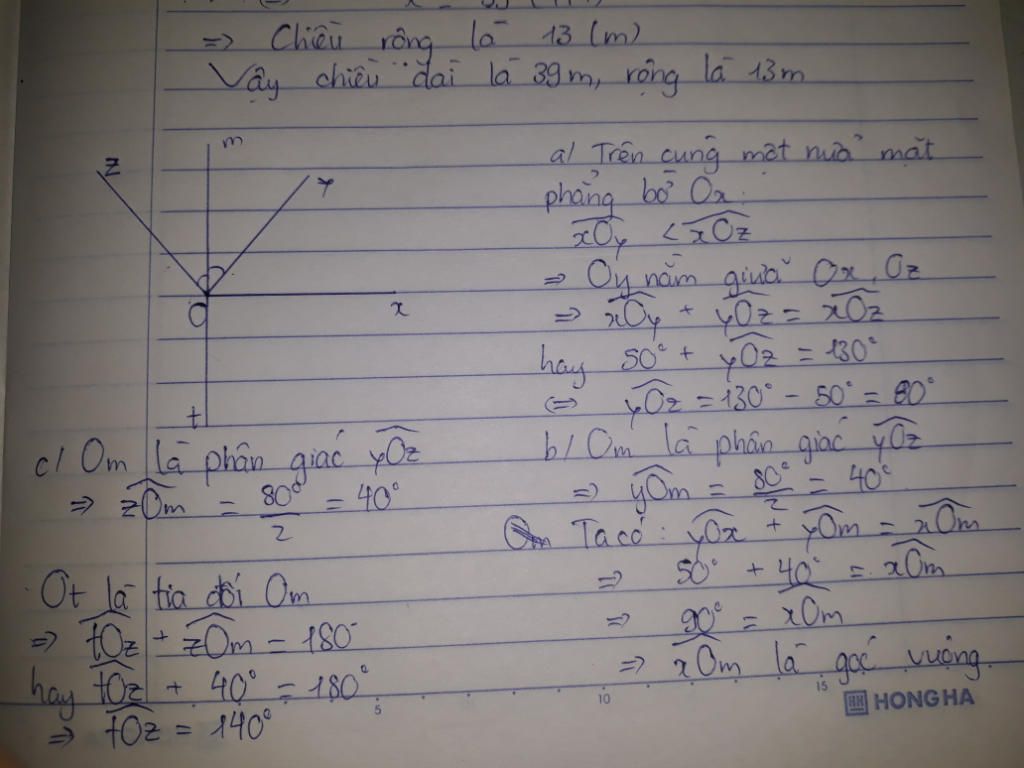 => Chiều rộng là 13 (m)
Vậy chiều dài là 39m, rộng là 13m
z
m
y
O
x
t
a/ Trên cùng một nửa mặt
phẳng bờ Ox:
xOy < xOz
=> Oy nằm giữa Ox, Oz
=> xOy + yOz = xOz
hay 50° + yOz = 130°
<=> yOz = 130° - 50° = 80°
b/ Om là phân giác yOz
=> yOm = 80°/2 = 40°
Ta có: yOx + yOm = xOm
=> 50° + 40° = xOm
=> 90° = xOm
=> xOm là góc vuông
c/ Om là phân giác yOz
=> zOm = 80°/2 = 40°
Ot là tia đối Om
=> tOz + zOm = 180°
hay tOz + 40° = 180°
=> tOz = 140°
5 10 15
HONG HA